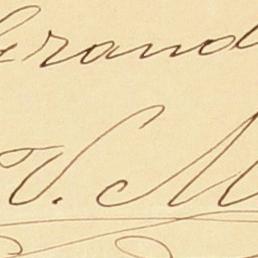 Grand
V. M